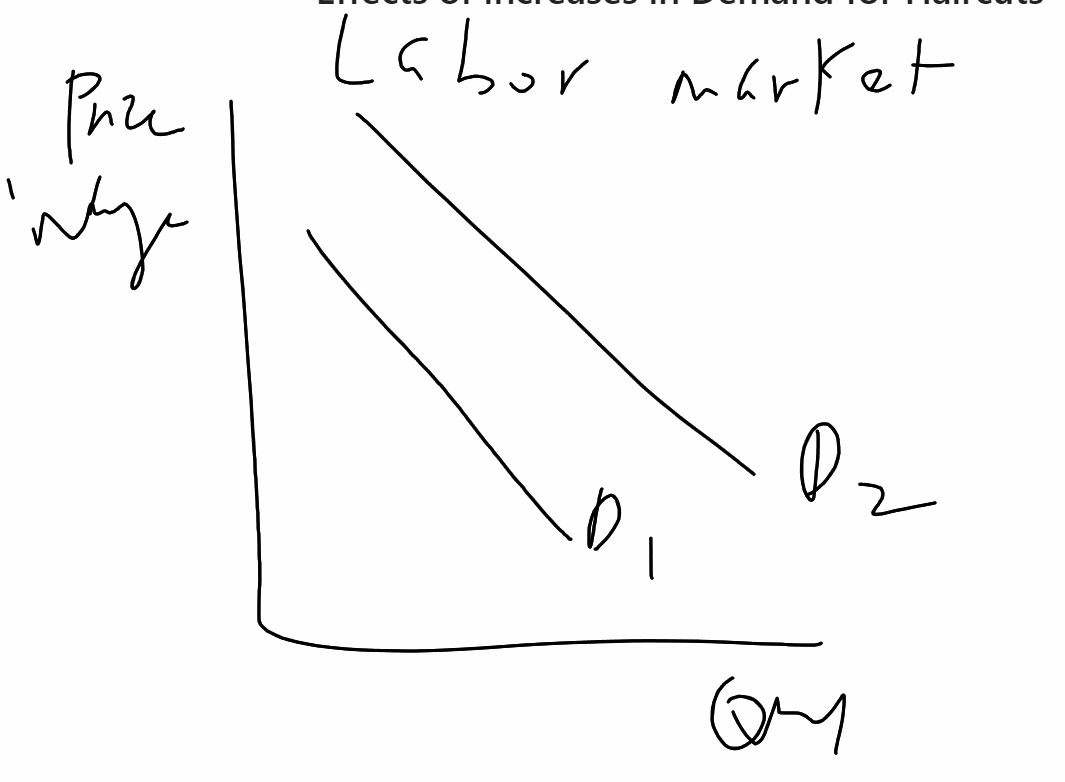 Effects of Increases in Demand for Haircuts
Labor market
Price
wage
D2
D1